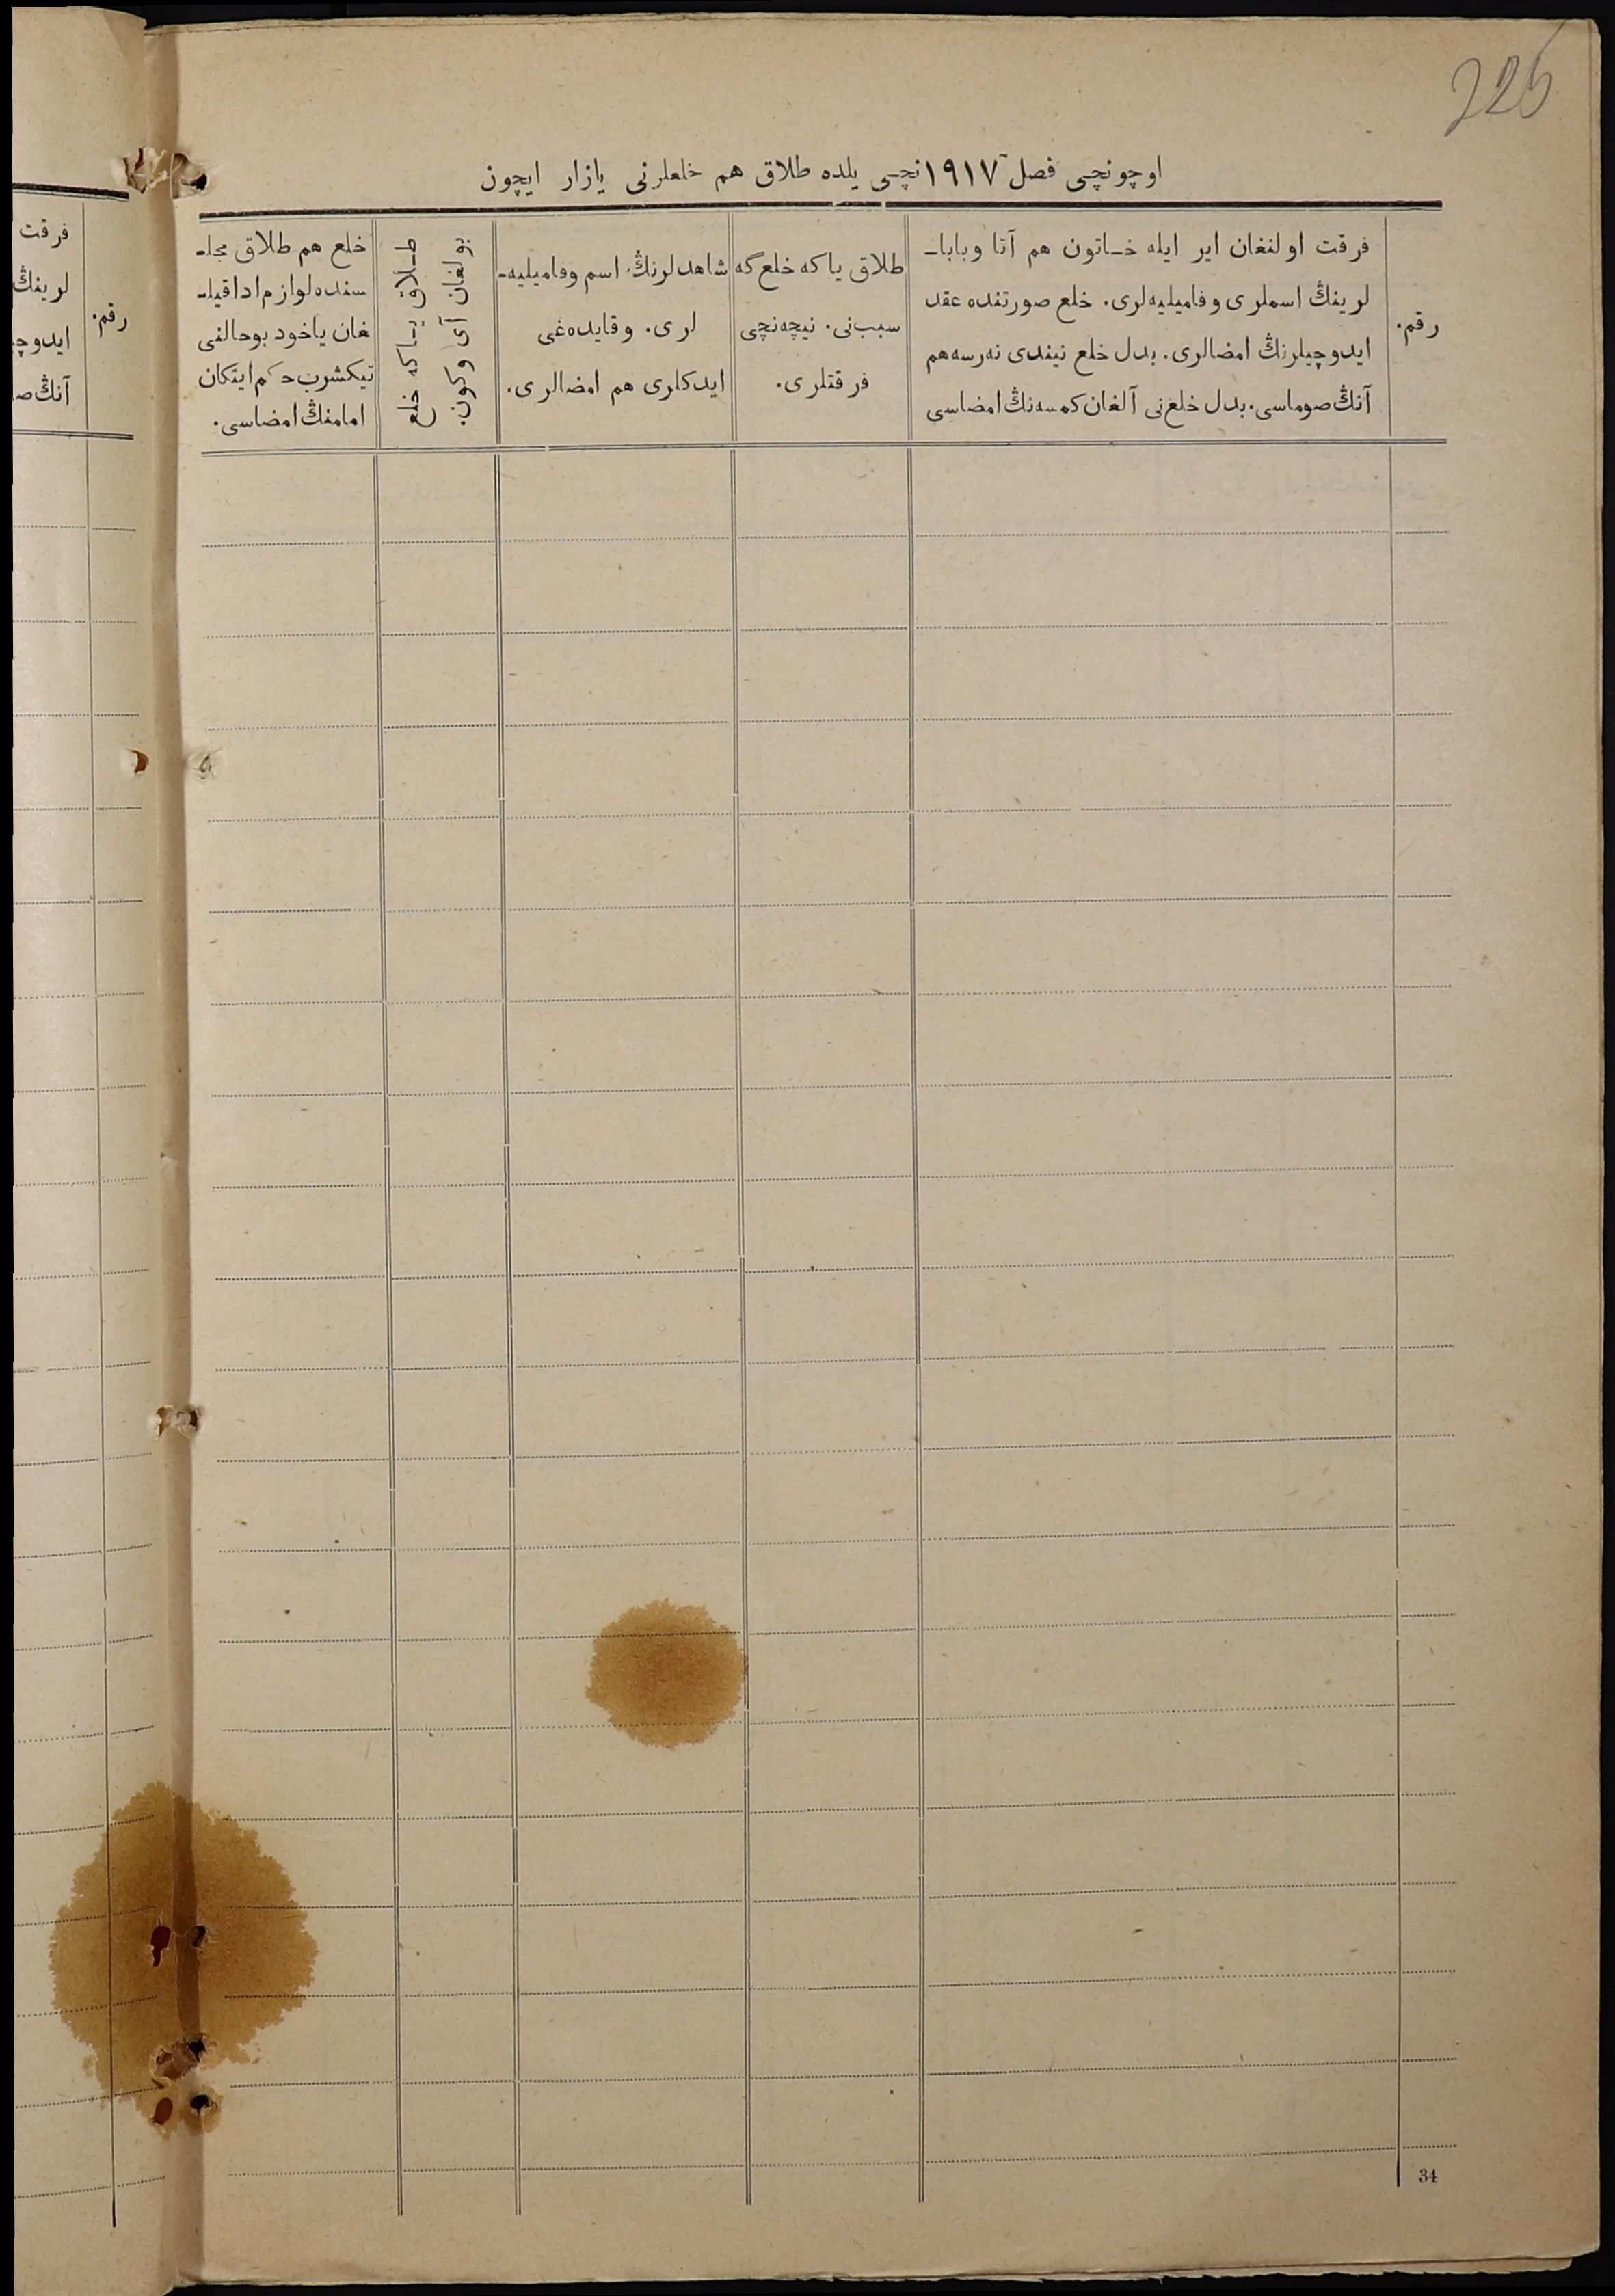 225
اوچونچی فصل ١٩١٧ نچی یلده طلاق هم خلعلرنی یازار ایچون
رقم.
فرقت اولنغان ایر ایله خاتون هم آتا وبابا-
لرینڭ اسملری وفامیلیه‌لری. خلع صورتنده عقد
ایدوچیلرنڭ امضالری. بدل خلع نیندی نه‌رسه‌هم
آنڭ صوماسی. بدل خلع‌نی آلغان کمسه‌نڭ امضاسی
طلاق یا که خلع گه
سبب‌نی. نیچه‌نچی
فرقتلری.
شاهدلرنڭ اسم وفامیلیه-
لری. وقایده‌غی
ایدکلری هم امضالری.
طلاق یاکه خلع
بولغان آی وکون.
خلع هم طلاق مجلـ
سنده لوازم ادا قیلـ
غان یاخود بوحالنی
تیکشرب حکم ایتکان
امامنڭ امضاسی.
رقم.
فرقت
لرینڭ
ایدوچی
آنڭ ص
34